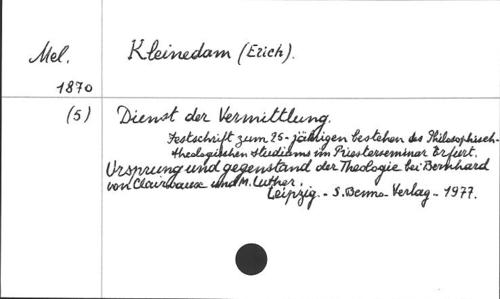 Mel. Kleinedam (Erich).
1870
(5) Dienst der Vermittlung.
Festschrift zum 25-jährigen bestehen des Philosophisch-
theologischen studiums im Priesterseminar Erfurt.
Ursprung und gegenstand der Theologie bei Bernhard
von Clairvaux und M. Luther.
Leipzig. - S. Benno - Verlag - 1977.